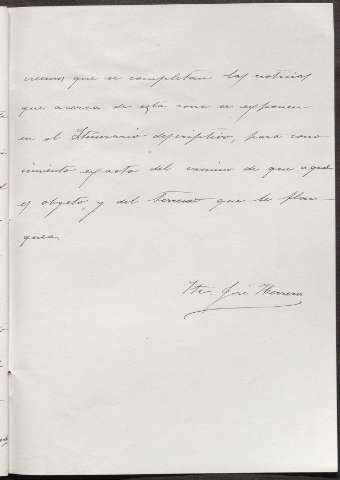 creemos que se completan las noticias
que acerca de esta zona se exponen
en el Itinerario descriptivo, para cono-
cimiento exacto del camino de que aquel
es objeto, y del terreno que le flan-
quea.
José Herrera